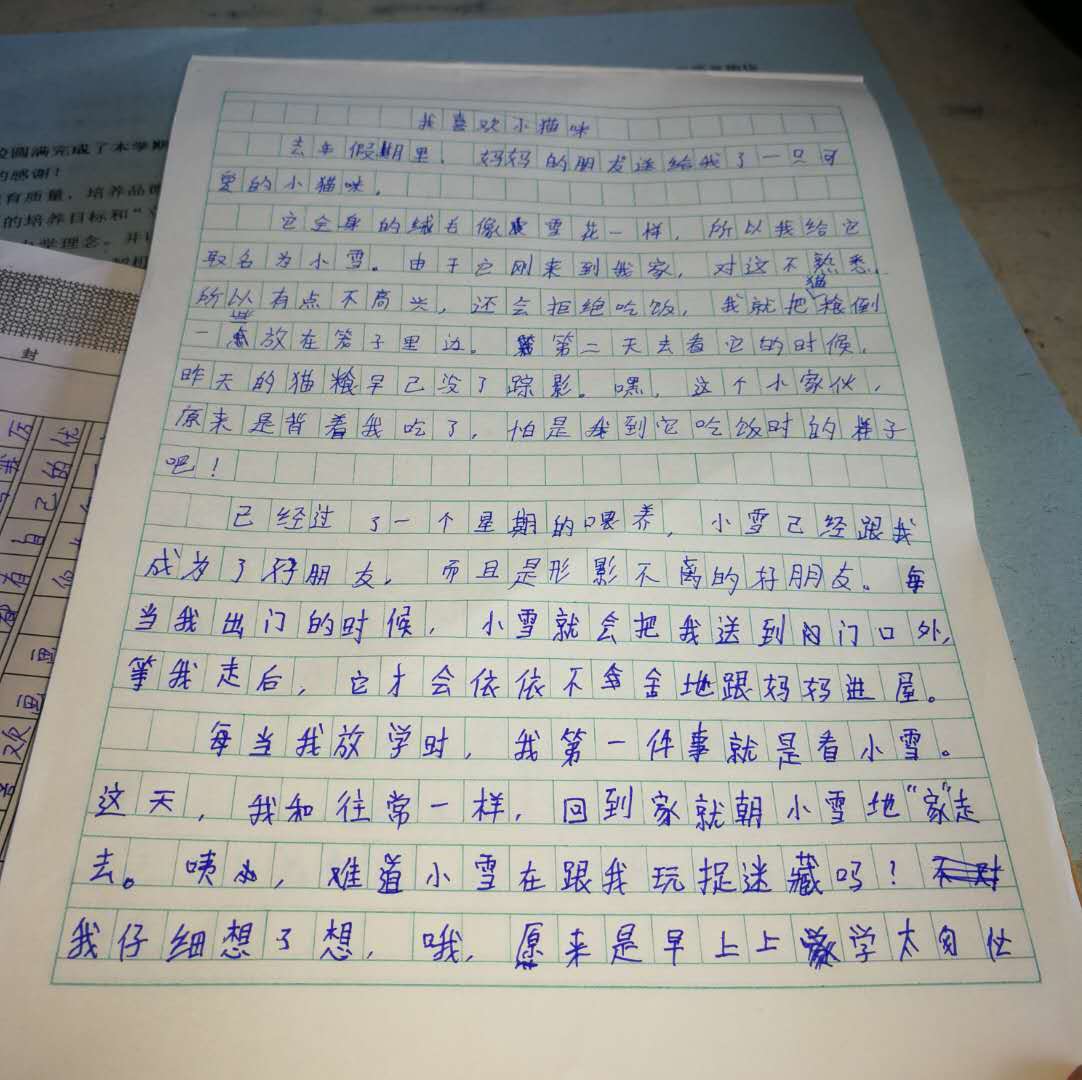 我喜欢小猫咪
去年假期里，妈妈的朋友送给我了一只可
爱的小猫咪，
它全身的绒毛像雪花一样，所以我给它
取名为小雪。由于它刚来到我家，对这不熟悉，
所以有点不高兴，还会拒绝吃饭，我就把猫粮倒
一些放在笼子里边。第二天去看它的时候，
昨天的猫粮早已没了踪影。嘿，这个小家伙，
原来是背着我吃了，怕是我到它吃饭时的样子
吧！
已经过了一个星期的喂养，小雪已经跟我
成为了好朋友，而且是形影不离的好朋友。每
当我出门的时候，小雪就会把我送到门口外，
等我走后，它才会依依不舍地跟妈妈进屋。
每当我放学时，我第一件事就是看小雪。
这天，我和往常一样，回到家就朝小雪地“家”走
去。咦，难道小雪在跟我玩捉迷藏吗！
我仔细想了想，哦，原来是早上上学太匆忙
校圆满完成了本学期
的感谢！
有质量，培养品
的培养目标和“
封